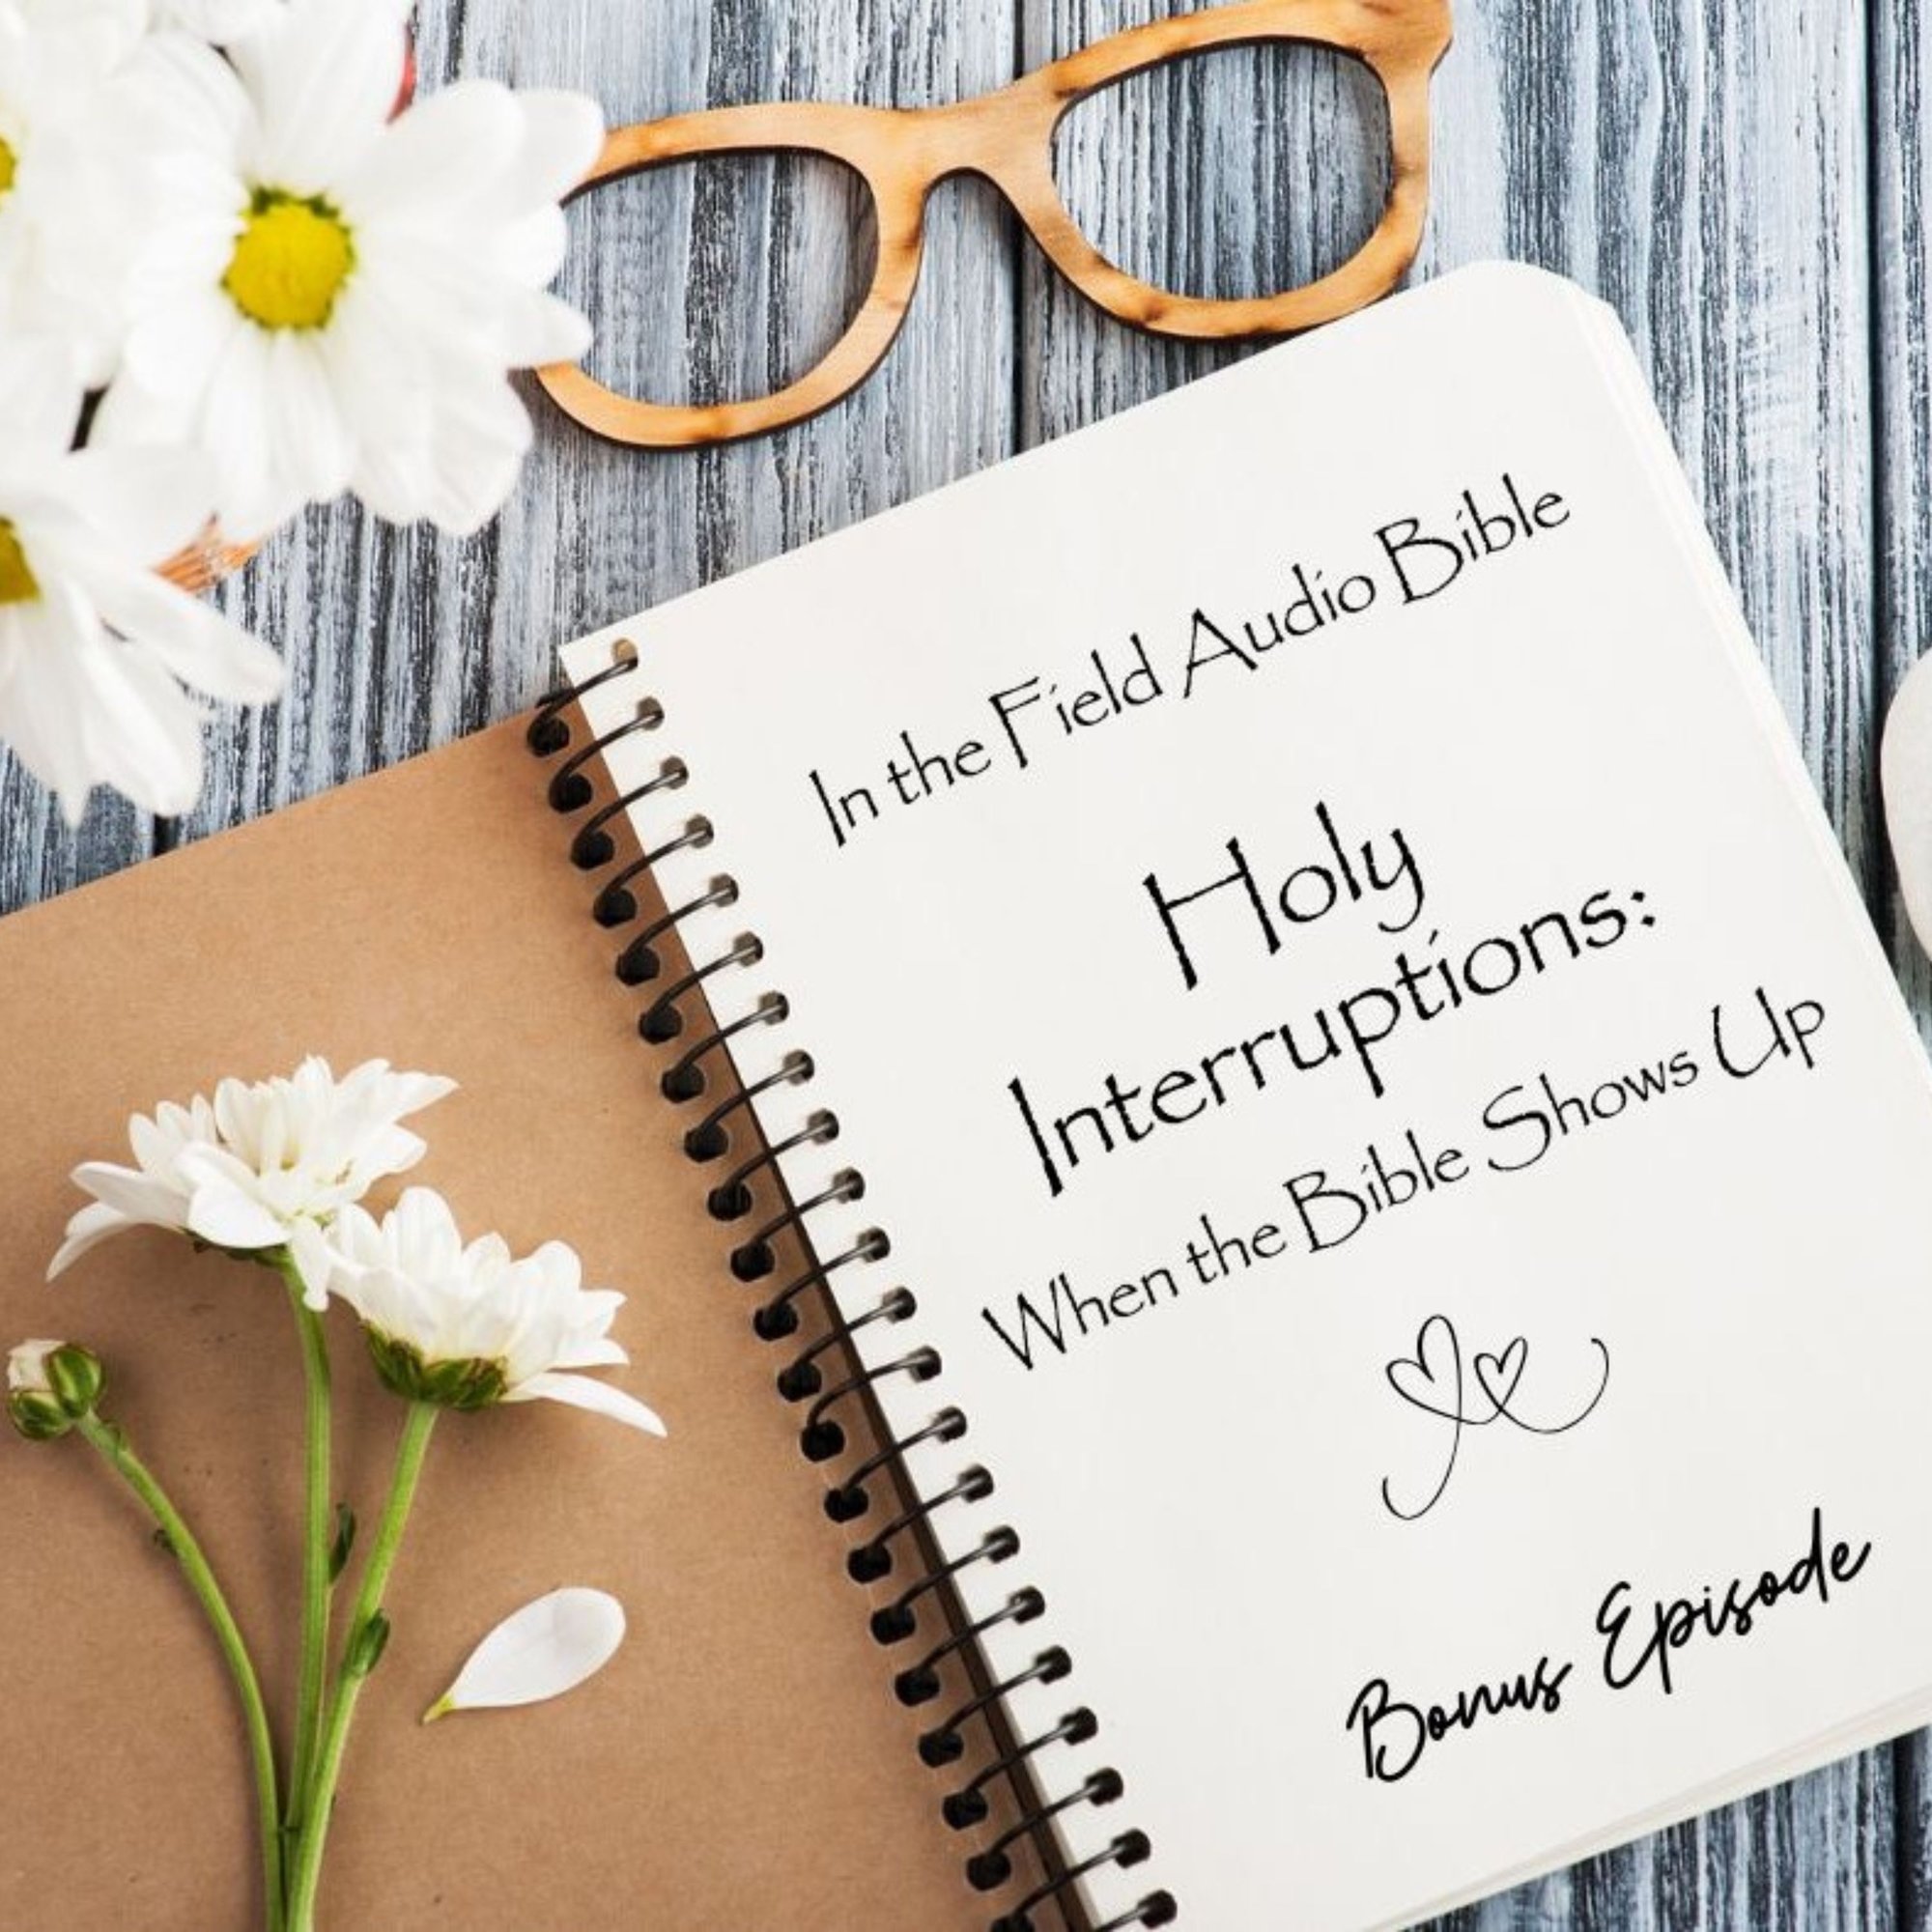 In the Field Audio Bible
Holy
Interruptions:
When the Bible Shows Up
Bonus Episode